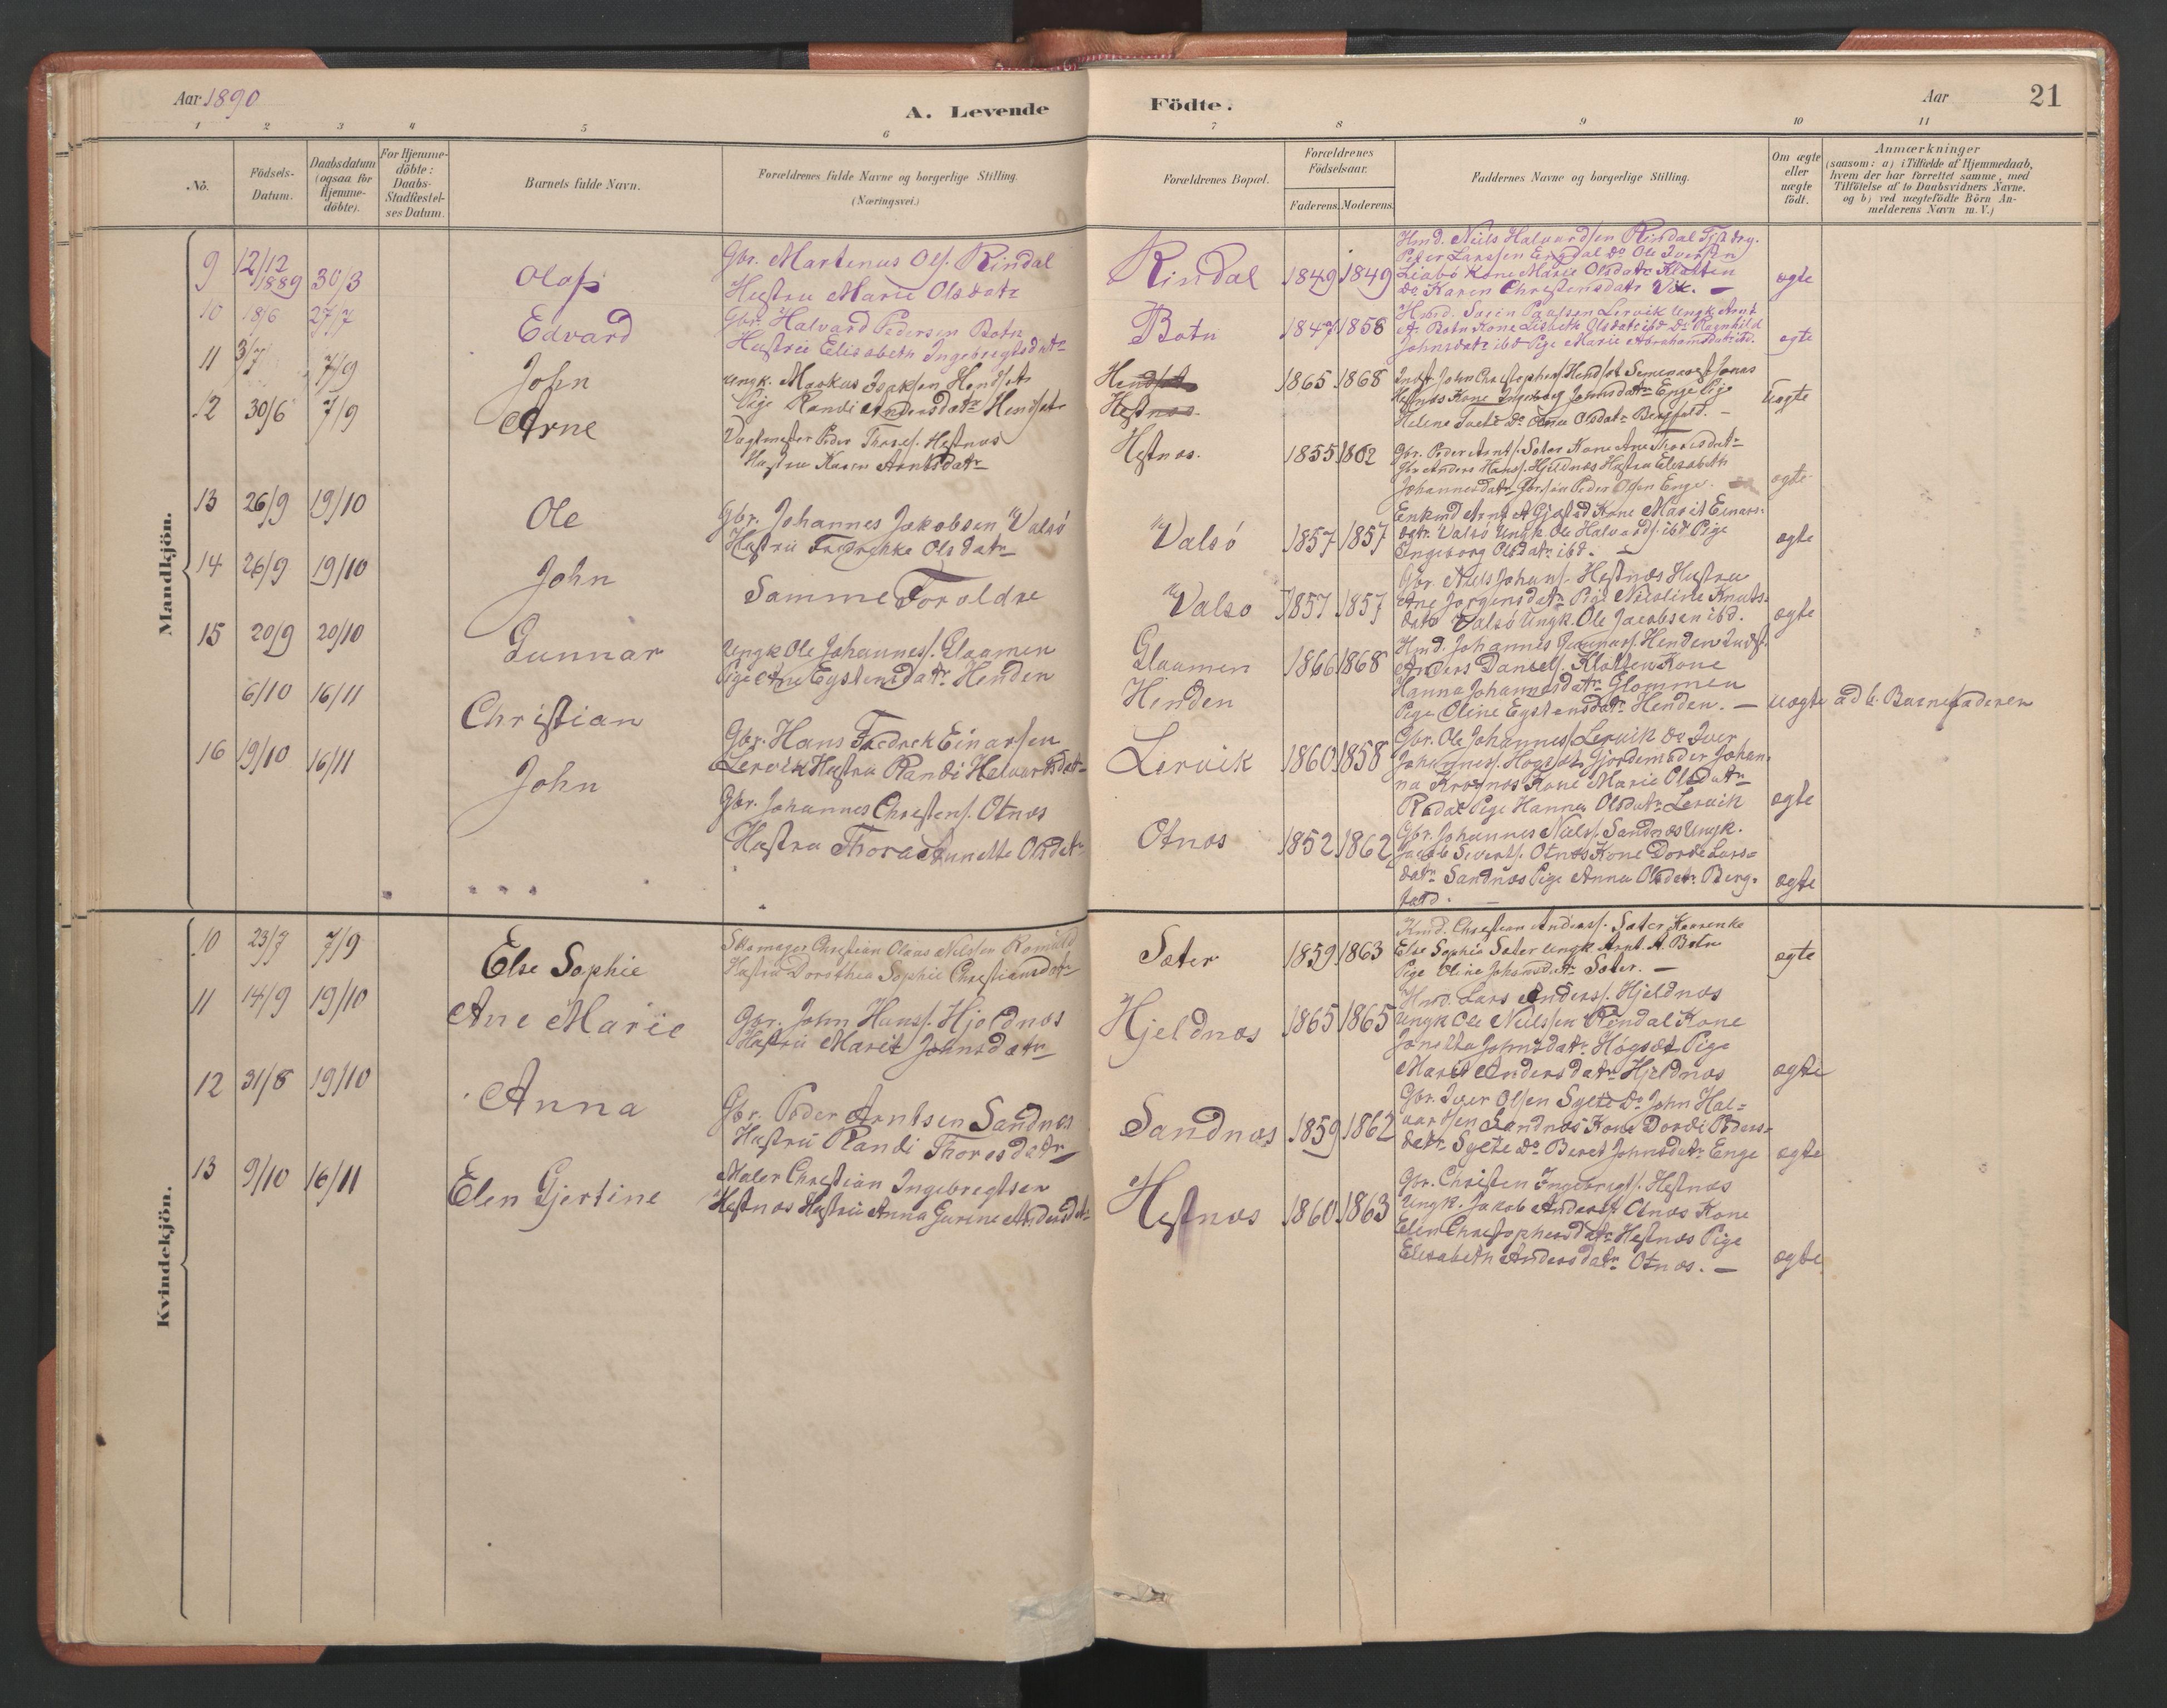 Aar 1890
A. Levende Födte.
Aar
21
1 2 3 4 5 6 7 8 9 10 11
No.
Födsels-Datum.
Daabsdatum (ogsaa for Hjemme-döbte).
For Hjemme-döbte: Daabs-Stadfæstel-ses Datum.
Barnets fulde Navn.
Forældrenes fulde Navne og borgerlige Stilling. (Næringsvei.)
Forældrenes Bopæl.
Forældrenes Födselsaar.
Faderens. Moderens.
Faddernes Navne og borgerlige Stilling.
Om ægte eller uægte födt.
Anmærkninger (saasom: a) i Tilfælde af Hjemmedaab, hvem der har forrettet samme, med Tilföielse af to Daabsvidners Navne, og b) ved uægtefödte Börn An-melderens Navn m. V.)
Mandkjön.
9 12/12 1889 30/3 Olaf
Gbr. Martenus Ols. Rindal
Hustru Marie Olsdatr
Rindal 1849 1849
Hmd. Niels Halvardsen Rindal
Peder Larssen Engdal Do Ole Iversen
Liabö Kone Marie Olsdatr Klatten
Do Karen Christensdatr Vik. —
ægte
10 18/6 27/7 Edvard
Gbr. Halvard Pedersen Botn
Hustru Elisabeth Ingebregtsdatr
Botn 1847 1858
Lervik Ungk Arnt
A. Botn Kone Lisbeth Olsdatr ibd Do Ragnhild
Johnsdatr ibd Pige Marie Abrahamsdatr ibd.
ægte
11 3/7 7/9 John
Ungk. Markus Isaksen Hendset
Pige Randi Andersdatr Hendset
Hendset
Hestnes
1865 1868
Indst John Christophers. Hendset Seminarist Jonas
Hestnæs Kone Ingeborg Johnsdatr Enge Pige
Helena Do Anne Olsdatr Bergfald. —
Uægte
12 30/6 7/9 Arne
Vagtmester Peder Thores. Hestnæs
Hustru Karen Arntsdatr
Hestnæs. 1855 1862
Gbr. Peder Arnts. Sæter Kone Ane Thoresdatr
Gbr Anders Hans. Hjeldnæs Hustru Elisabeth
Johannesdatr Peder Olsen Enge.
ægte
13 26/9 19/10 Ole
Gbr. Johannes Jakobsen Valsö
Hustru Fredrikke Olsdatr
Valsö 1857 1857
Enkmd Arnt A Kone Marit Einars-
datr. Valsö Ungk Ole Halvards. ibd Pige
Ingeborg Olsdatr ibd. —
ægte
14 26/9 19/10 John
Samme Forældre
Valsö 1857 1857
Gbr. Niels Johans. Hestnæs Hustru
Ane Jorgensdatr Pige Nicoline Knuts-
datr Valsö Ungk. Ole Jacobsen ibd.
ægte
15 20/9 20/10 Gunnar
Ungk Ole Johannes. Glaamen
Pige Ane Eystensdatr Henden
Glaamen
Henden
1866 1868
Hmd. Johannes Gunnars. Henden Indst.
Anders Daniels. Klotten Kone
Hanna Johannesdatr Glommen
Pige Oline Eystensdatr Henden. —
uægte
ad b. Barnefaderen
6/10 16/11 Christian
Gbr. Hans Fredrek Einarsen
Lervik Hustru Randi Halvardsdatr
Lervik 1860 1858
Gbr. Ole Johannes. Lervik Do Iver
Johannes. Hogset Gjordemoder Johan-
na Kroknæs Kone Marie Olsdatr
Rödal Pige Hanna Olsdatr Lervik
ægte
16 19/10 16/11 John
Gbr. Johannes Christens. Otnæs
Hustru Thora Annette Olsdatr
Otnæs 1852 1862
Gbr. Johannes Niels. Sandnæs Ungk.
Jacob Siverts. Otnæs Kone Dorde Lars-
datr Sandnæs Pige Anna Olsdatr Berg-
fald. —
ægte
Kvindekjön.
10 23/7 7/9 Else Sophie
Skomager Christian Olaus Nielsen
Hustru Dorothea Sophie Christiansdatr
Sæter 1859 1863
Kmd. Christian Anderss. Sæter
Else Sophie Sæter Ungk Arnt A. Botn
Pige Oline Johansdatr Sæter. —
ægte
11 14/9 19/10 Ane Marie
Gbr. John Hans. Hjeldnæs
Hustru Marit Johnsdatr
Hjeldnæs 1865 1865
Hmd. Lars Anders. Hjeldnæs
Ungk Ole Nielsen Rindal Kone
Jonetta Johnsdatr Hogset Pige
Marit Andersdatr Hjeldnæs
ægte
12 31/8 19/10 Anna
Gbr. Peder Arntsen Sandnæs
Hustru Randi Thoresdatr
Sandnæs 1859 1862
Gbr. Iver Olsen Sylte Do John Hal-
vardsen Sandnæs Kone Dordi Peders-
datr Sylte Do Beret Johnsdatr Enge
ægte
13 9/10 16/11 Elen Gjertine
Maler Christian Ingebregtsen
Hestnæs Hustru Anna Gurine Andersdatr
Hestnæs 1860 1863
Gbr. Christen Ingebregts. Hestnæs
Ungk. Jakob Anders. Otnæs Kone
Elen Christophersdatr Hestnæs Pige
Elisabeth Andersdatr Otnæs. —
ægte